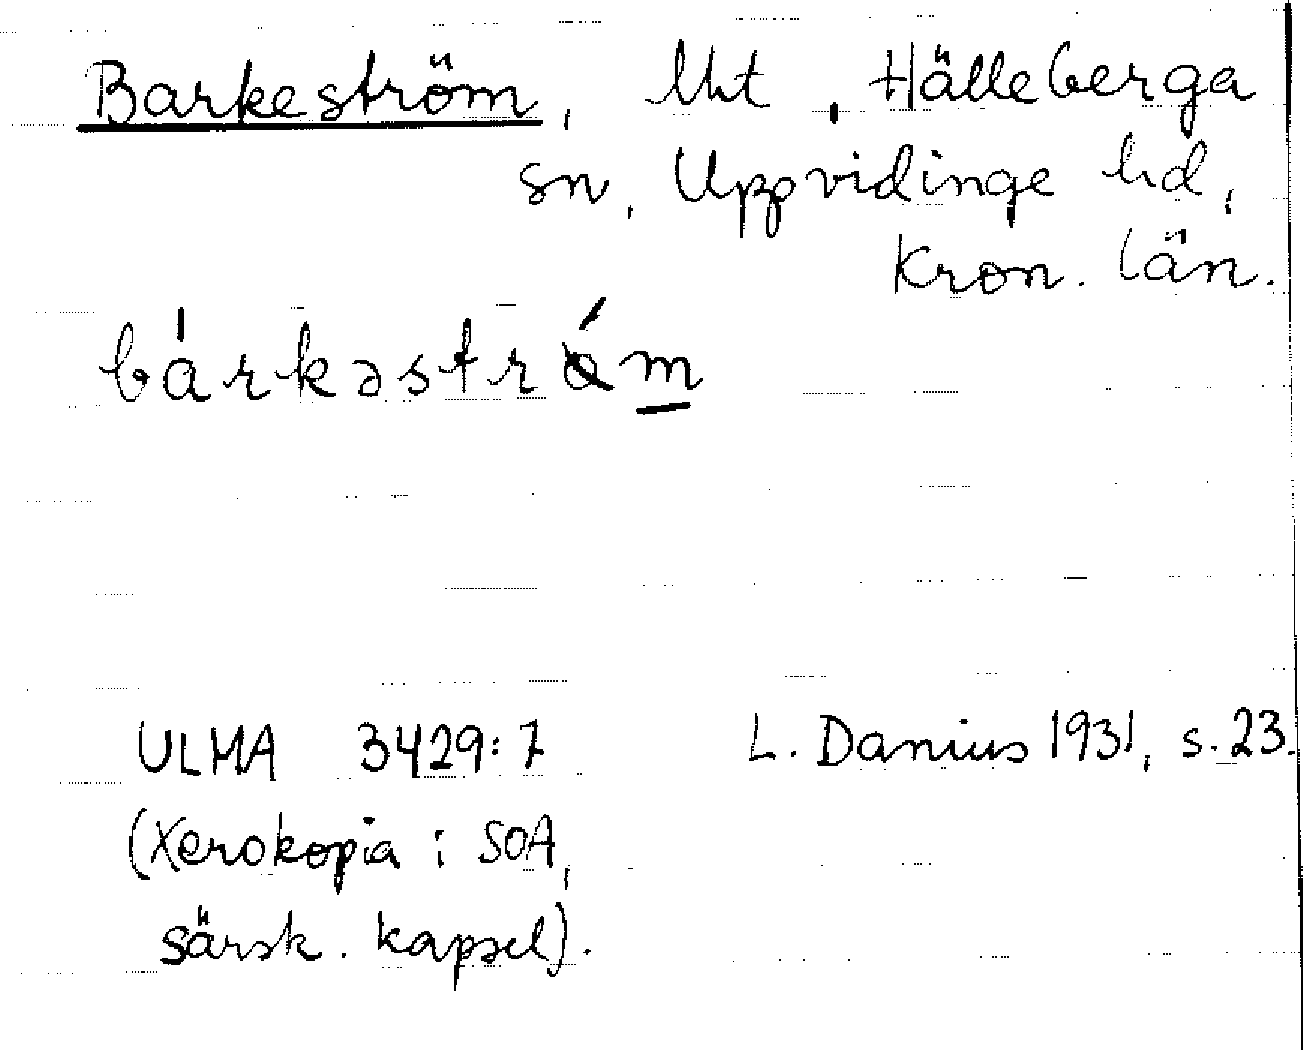 Barkeström, Uht, Hälleberga
sn, Uppvidinge hd,
Kron. län.
bárkəstrǿm
ULMA 3429:7 L. Danius 1931, s. 23.
(Xerokopia i SOA,
särsk. kapsel).